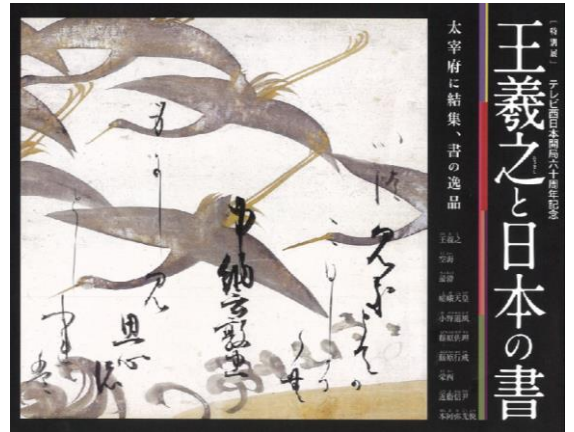 ［特別展］ テレビ西日本開局六十周年記念
王羲之と日本の書
太宰府に結集、書の逸品
王羲之
空海
最澄
嵯峨天皇
小野道風
藤原佐理
藤原行成
栄西
近衛信尹
本阿弥光悦
中納言敦忠